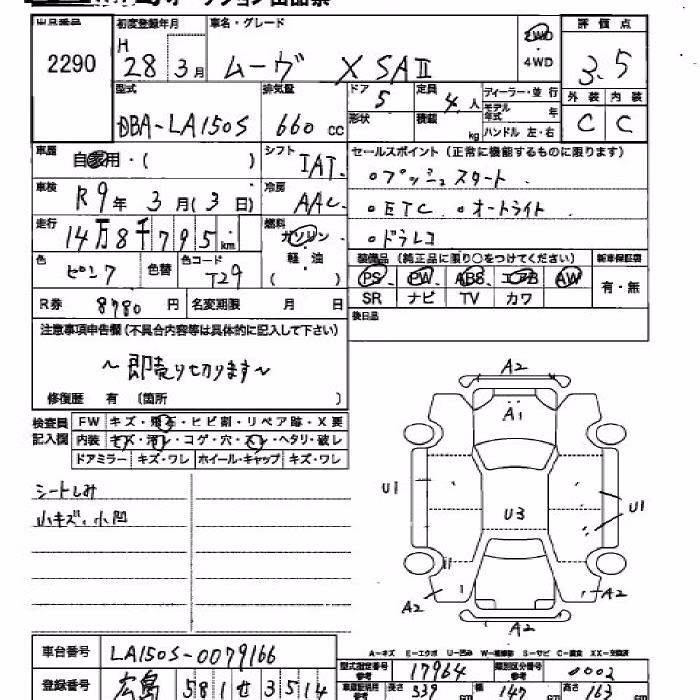 オークション出品票
出品番号 初度登録年月 車名・グレード 2WD 評価点
2290 H 28年 3月 ムーヴ X SAⅡ 4WD 3.5
型式 排気量 ドア 5 定員 4人 ディーラー・並行 外装 内装
DBA-LA150S 660 cc 形状 積載 kg モデル年式 年 C C
ハンドル 左・右
車歴 自家用・( ) シフト IAT セールスポイント(正常に機能するものに限ります)
車検 R9年 3月(3日) 冷房 AAC 。プッシュスタート
。ETC 。オートライト
走行 14万8千795km 燃料 ガソリン 軽・油 ( ) 。ドラレコ
色 ピンク 色替 色コード T29 装備品(純正品に限り○をつけてください) 新車保証書
PS PW ABS エアB AW 有・無
R券 8780円 名変期限 月 日 SR ナビ TV カワ
後日品
注意事項申告欄(不具合内容等は具体的に記入して下さい)
~即売り切ります~
修復歴 有 〔箇所 〕
検査員記入欄 FW キズ・飛石・ヒビ割・リペア跡・X要
内装 キズ・汚レ・コゲ・穴・スレ・ヘタリ・破レ
ドアミラー キズ・ワレ ホイール・キャップ キズ・ワレ
シートしみ
小キズ、小凹
A2
A1
U1
U3
U1
A2
A2
A2
A-キズ E-エクボ U-凹み W-補修跡 S-サビ C-腐食 XX-交換済
車台番号 LA150S-0079166
型式指定番号 17964 類別区分番号 0002
登録番号 広島 581 せ 3514
長さ 339 cm 幅 147 cm 高さ 163